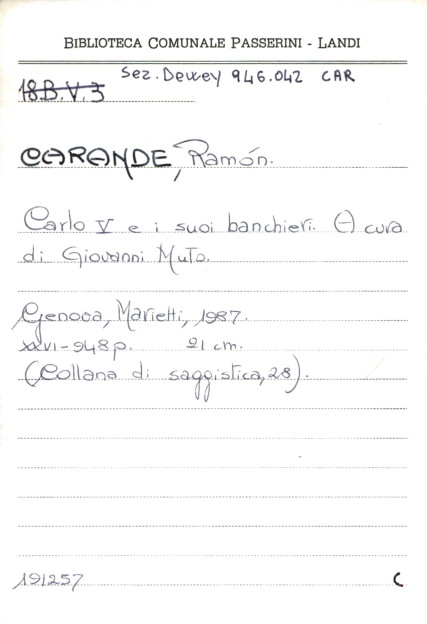 BIBLIOTECA COMUNALE PASSERINI - LANDI
Sez. Dewey 946.042 CAR
18.B.V.3
CARANDE, Ramón.
Carlo V e i suoi banchieri. A cura
di Giovanni Muto.
Genova, Marietti, 1987.
XXVI-948 p. 21 cm.
(Collana di saggistica, 28).
191257 C